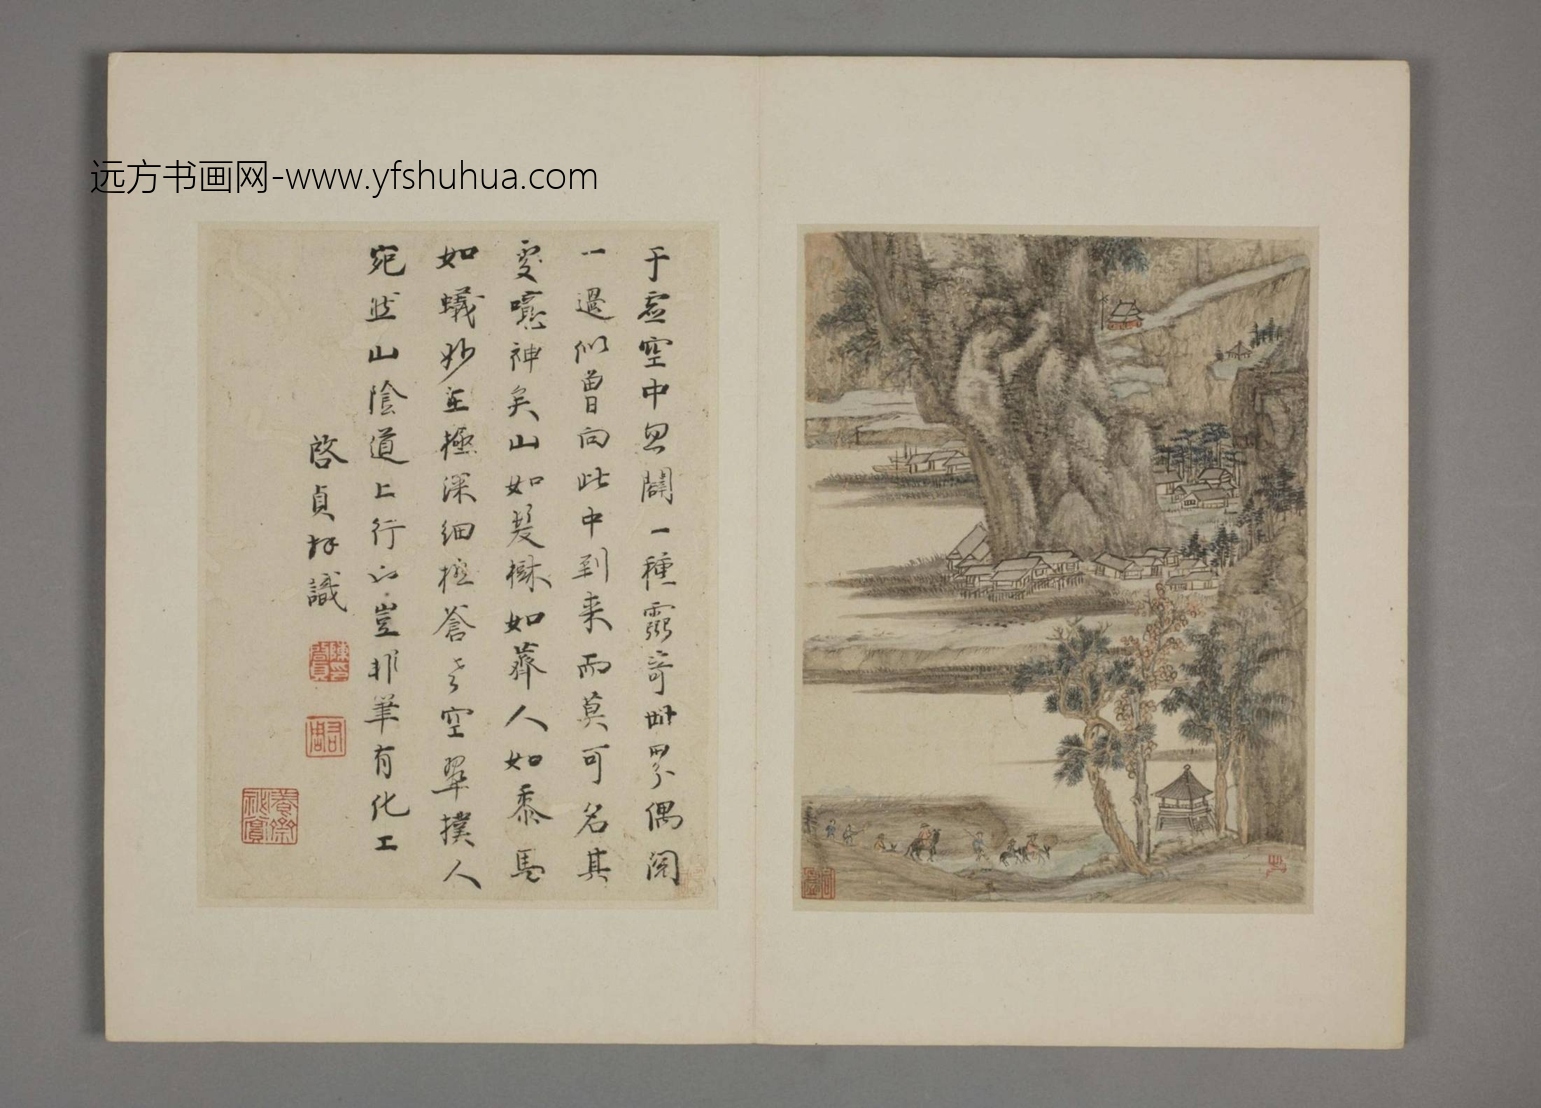 远方书画网-www.yfshuhua.com
于虛空中忽闢一種靈奇世界偶閱
一過似曾向此中到来而莫可名其
变噫神矣山如髮樹如薺人如黍馬
如蟻妙在極深細極蒼老空翠撲人
宛然山陰道上行豈非筆有化工
啓貞拜識